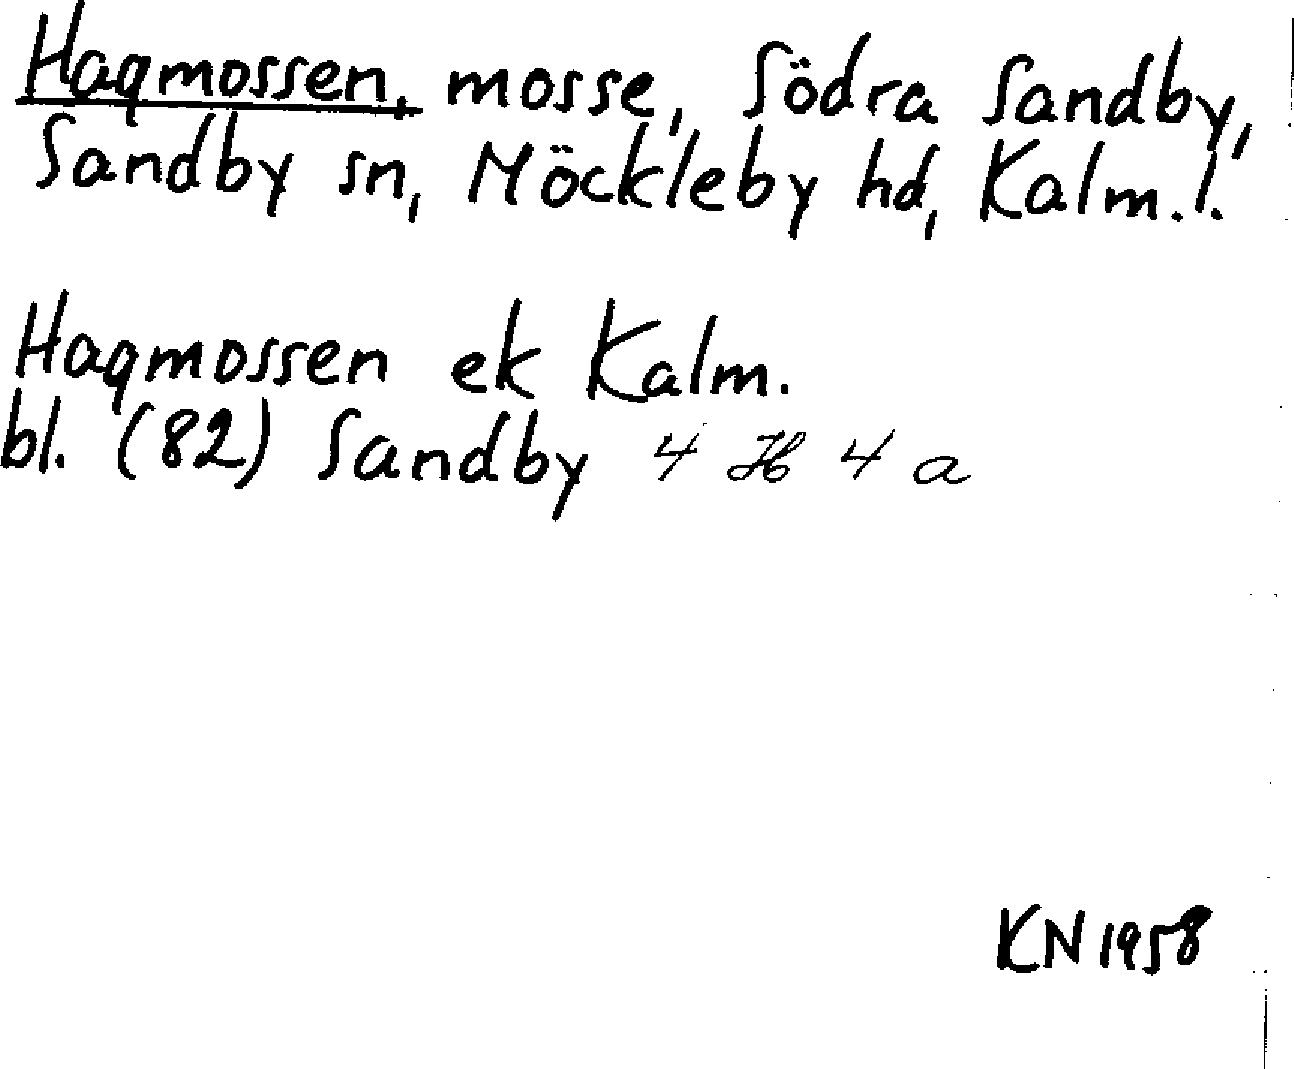 Hagmossen, mosse, Södra Sandby,
Sandby sn, Möckleby hd, Kalm. l.
Hagmossen ek Kalm.
bl. (82) Sandby 4 H 4 a
KN 1958